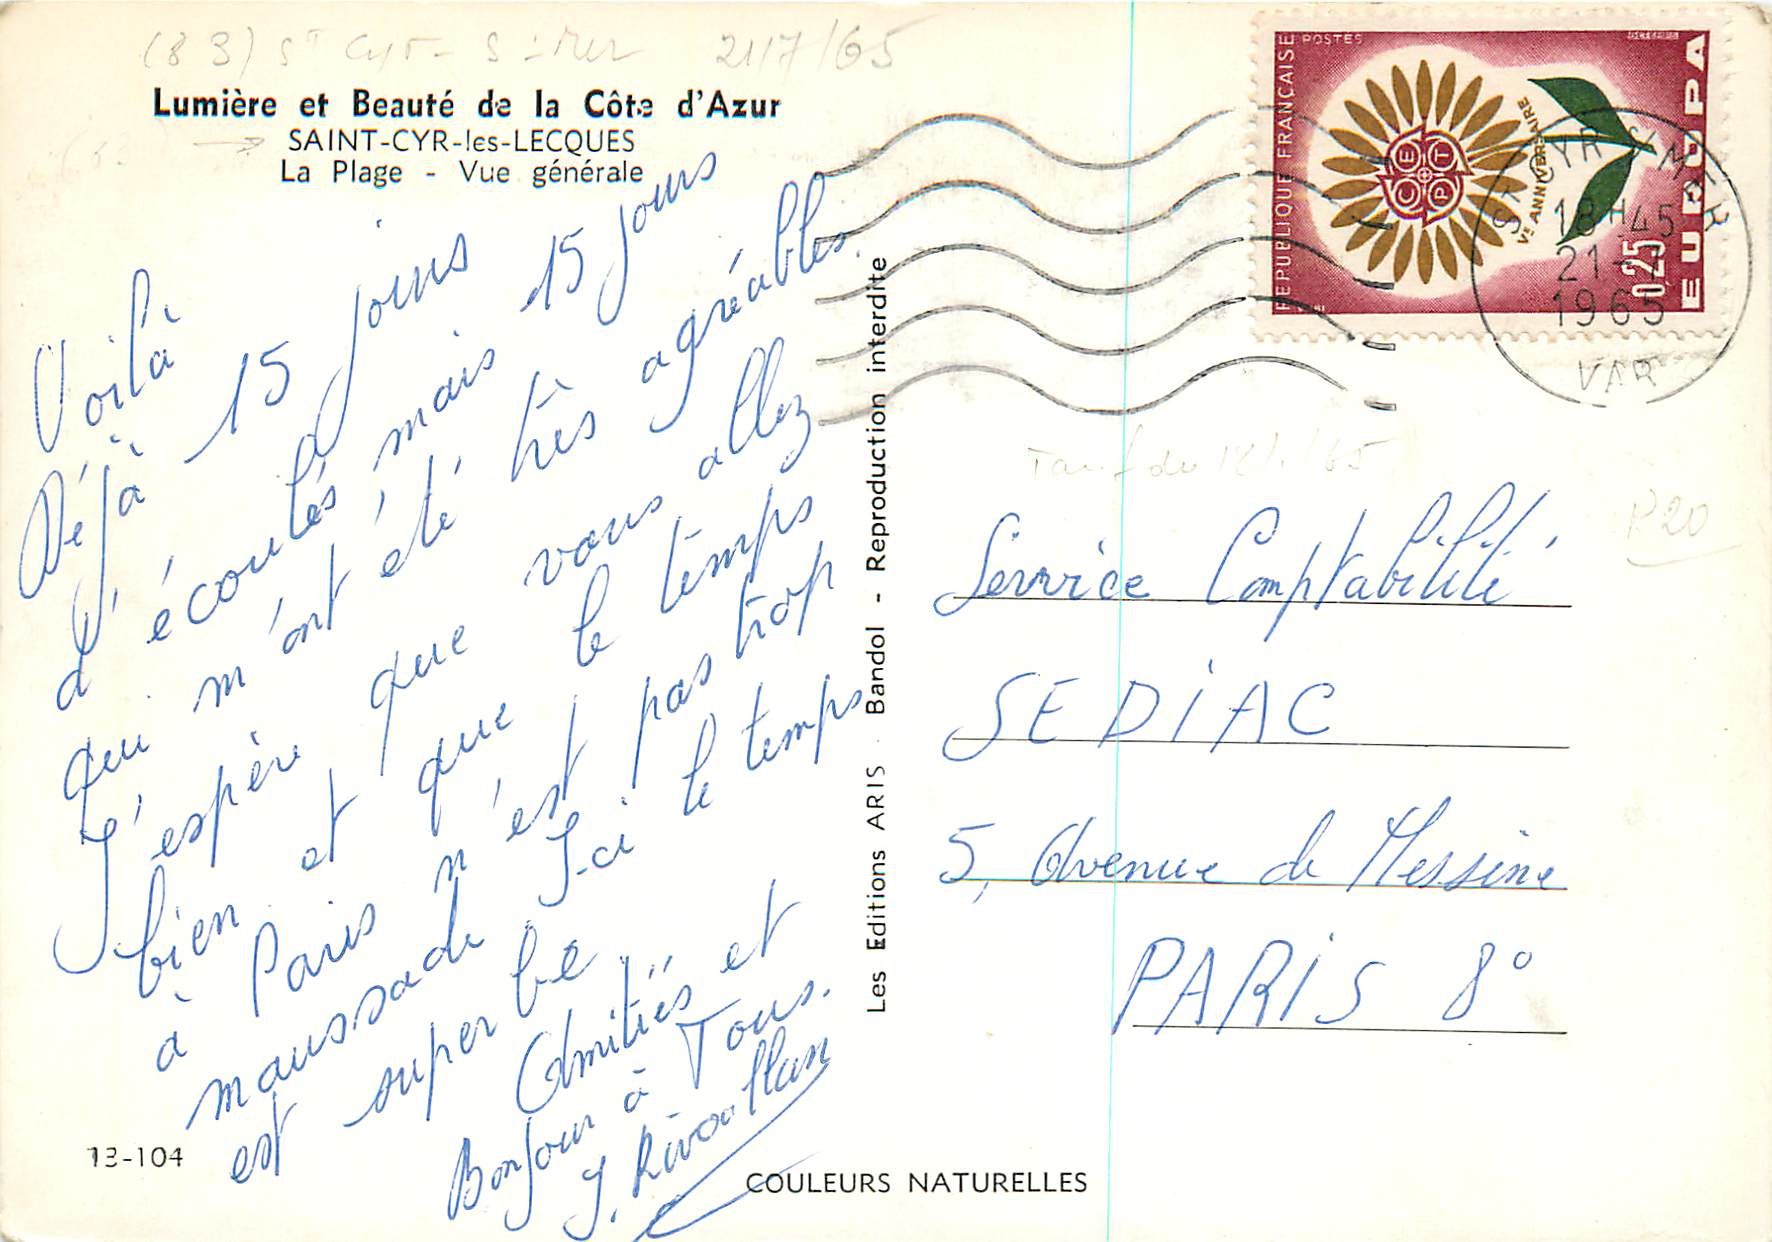 (83) St Cyr-S-Mer 21/7/65
Lumière et Beauté de la Côte d'Azur
SAINT-CYR-les-LECQUES
La Plage - Vue générale
Voilà
Déjà 15 jours
d'écoulés mais 15 jours
qui m'ont été très agréables.
J'espère que vous allez
bien et que le temps
à Paris n'est pas trop
maussade I-ci le temps
est superbe.
Amitiés et
Bonjour à Tous.
J. Rivoallan
13-104
COULEURS NATURELLES
Les Editions ARIS - Bandol - Reproduction interdite
REPUBLIQUE FRANÇAISE
POSTES
CEPT
Ve ANNIVERSAIRE
0,25
EUROPA
ST CYR S/MER
18H45
21-7
1965
VAR
Tarif du 18/1/65
Service Comptabilité
SEDIAC
5, Avenue de Messine
PARIS 8°